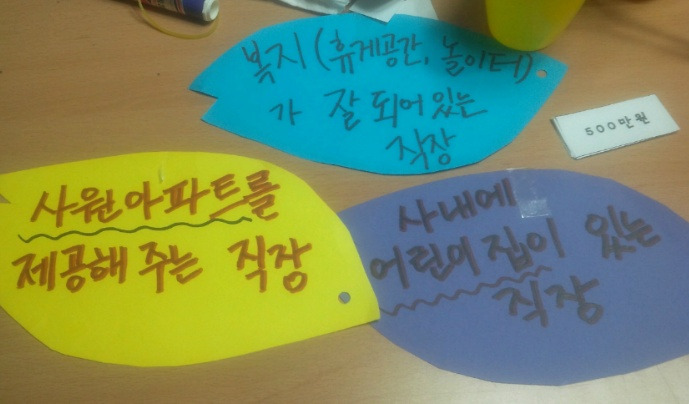 복지(휴게공간, 놀이터)
가 잘 되어있는
직장
500만원
사원아파트를
제공해 주는 직장
사내에
어린이집이 있는
직장